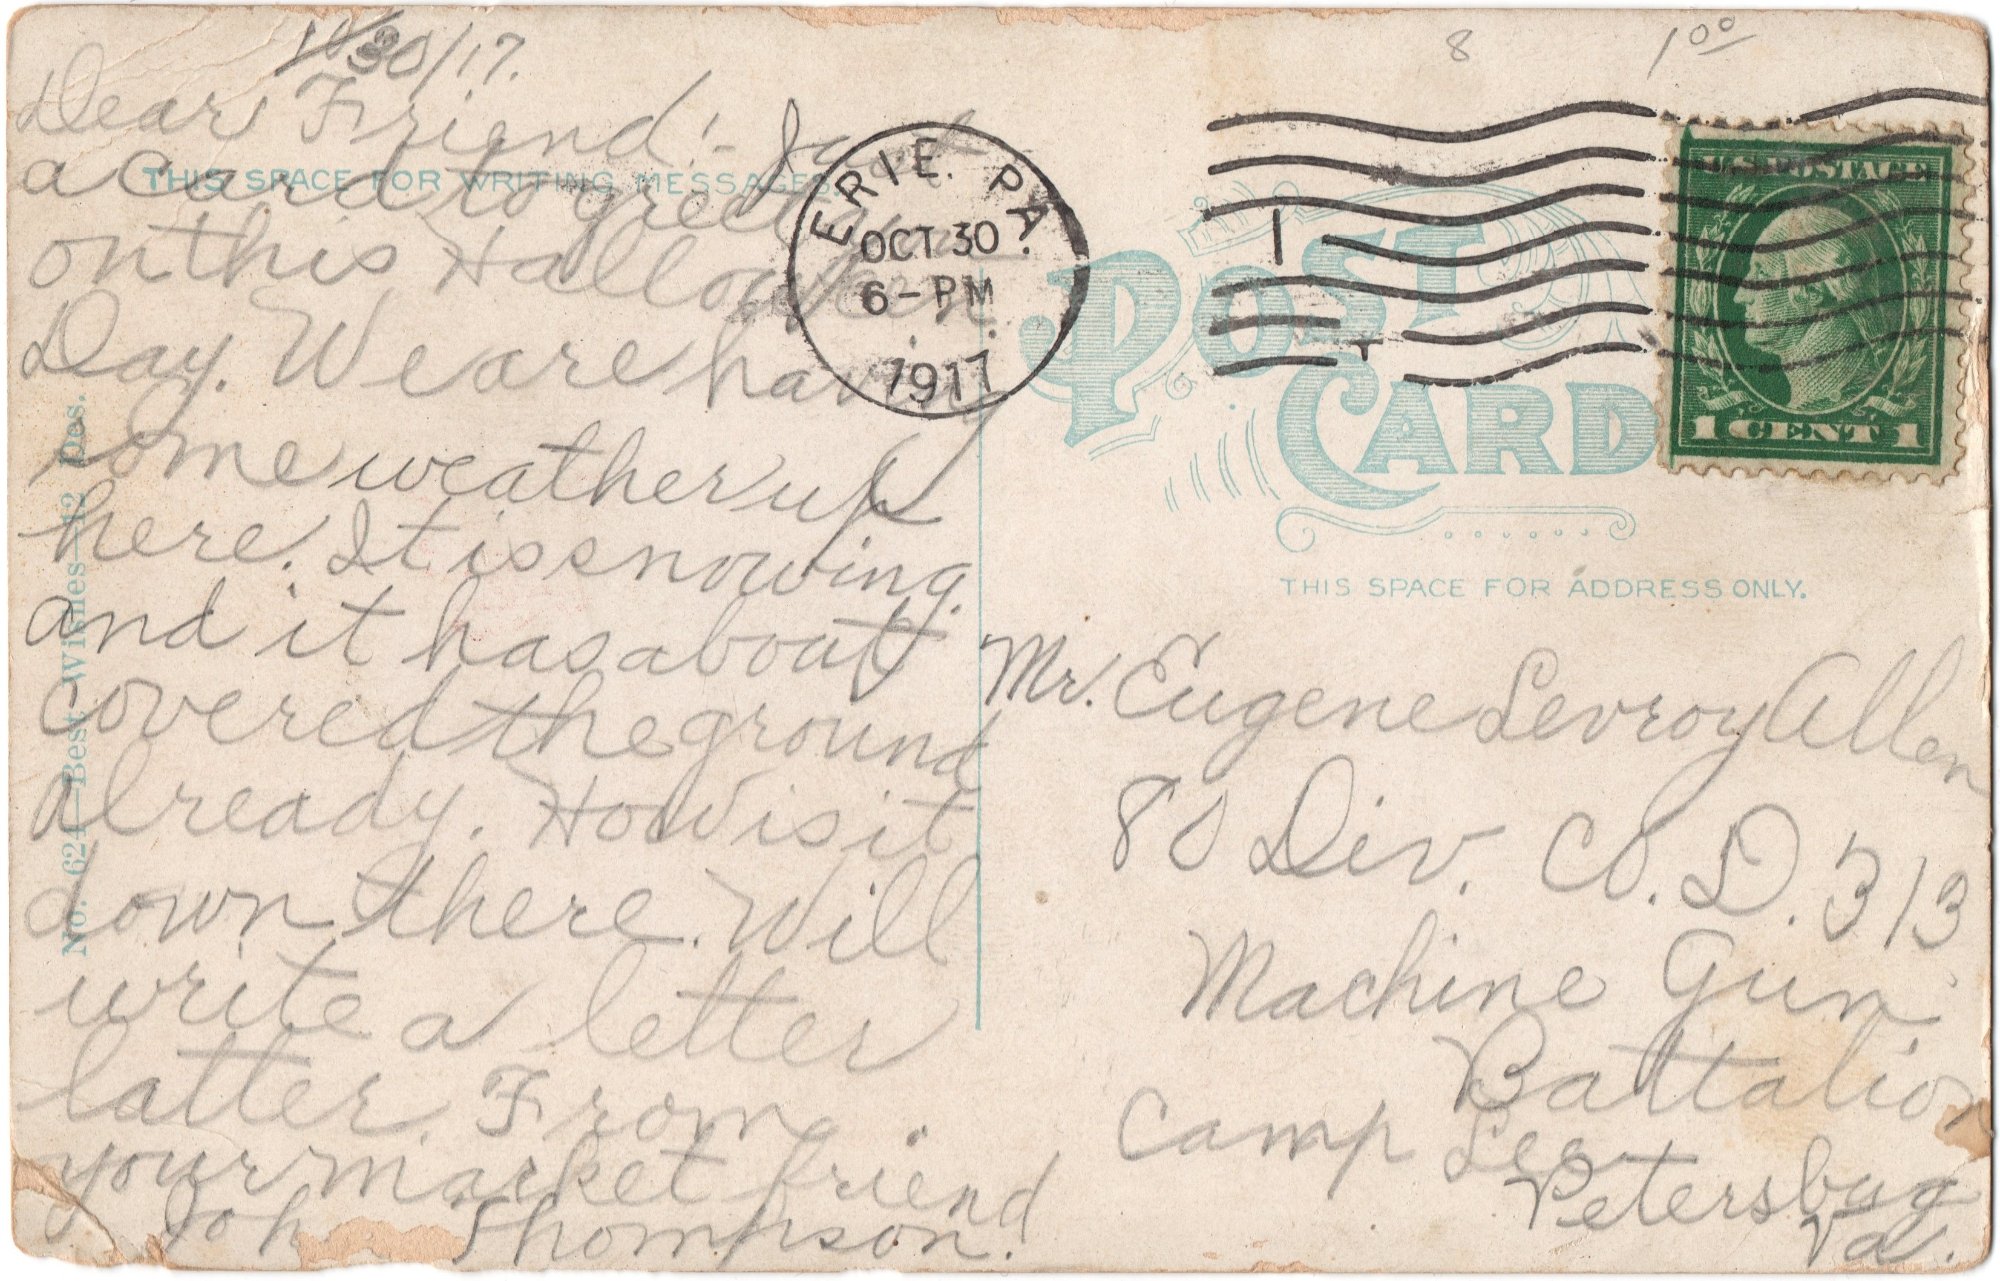 10/30/17.
Dear Friend:- Just
a card to greet you
on this Hallow'een
Day. We are having
some weather up
here. It is snowing
and it has about
covered the ground
already. How is it
down there. Will
write a letter
latter. From
your market friend
John Thompson.
THIS SPACE FOR WRITING MESSAGES
No. 624—Best Wishes—12 Des.
ERIE. PA.
OCT 30
6-PM
1917
8
1 00
U.S. POSTAGE
1 CENT 1
POST CARD
THIS SPACE FOR ADDRESS ONLY.
Mr. Eugene Levroy Allen
80 Div. Co. D. 313
Machine Gun
Battalion
Camp Lee
Petersburg
Va.